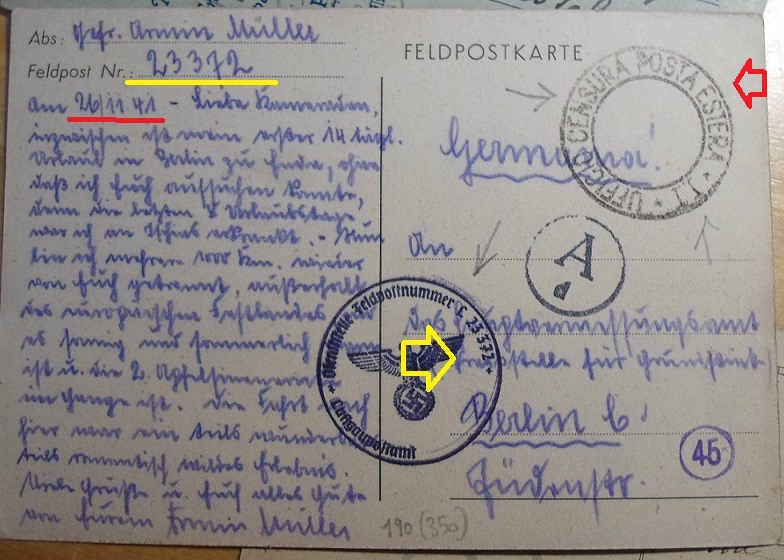 Abs: Gefr. Armin Müller
Feldpost Nr.: 23372
Am 26/11 41 - Liebe Kameraden,
inzwischen ist mein erster 14 tägl.
Urlaub in Berlin zu Ende, ohne
daß ich Euch aufsuchen konnte,
denn die letzten 8 Urlaubstage
war ich an Ischias erkrankt. - Nun
bin ich mehrere 1000 Km. wieder
von Euch getrennt, außerhalb
des europäischen Festlandes
es sonnig und sommerlich
ist u. die 2. Apfelsinenernte
im Gange ist. Die Fahrt nach
hier war ein teils
teils romantisch wildes Erlebnis.
Viele Grüße u. Euch alles Gute
von Eurem Armin Müller
FELDPOSTKARTE
UFFICIO CENSURA POSTA ESTERA · II ·
Germania!
An
A
d
das
für Grundstück
Berlin C
Jüdenstr.
Dienststelle Feldpostnummer L 23372
Luftgaupostamt
46
190 (350)